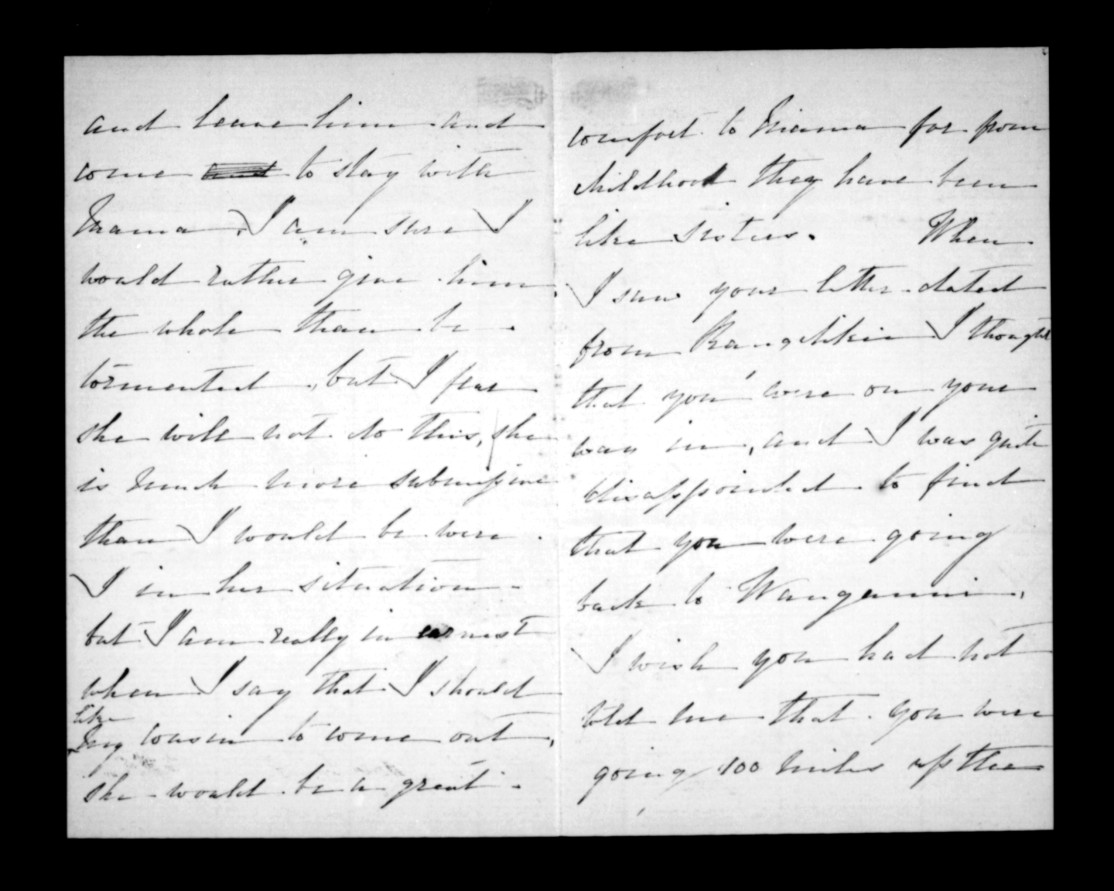 and leave him and
come to stay with
Mama, I am sure I
would rather give him
the whole than be
tormented, but I fear
she will not do this, she
is much more submissive
than I would be were
I in her situation
but I am really in earnest
when I say that I should
like
my cousin to come out,
she would be a great
comfort to Mama for from
childhood they have been
like sisters. When
I saw your letter dated
from Rangitikei I thought
that you were on your
way in, and I was quite
disappointed to find
that you were going
back to Wanganui.
I wish you had not
told me that you were
going 100 miles up the